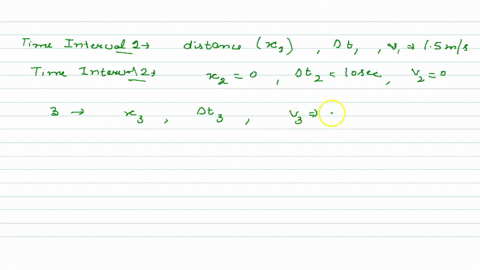 Time Interval 2→ distance (x₁) , Δt₁ , v₁ ⇒ 1.5 m/s
Time Interval 2→ x₂ = 0 , Δt₂ = 10 sec , v₂ = 0
3 → x₃ , Δt₃ , v₃ ⇒